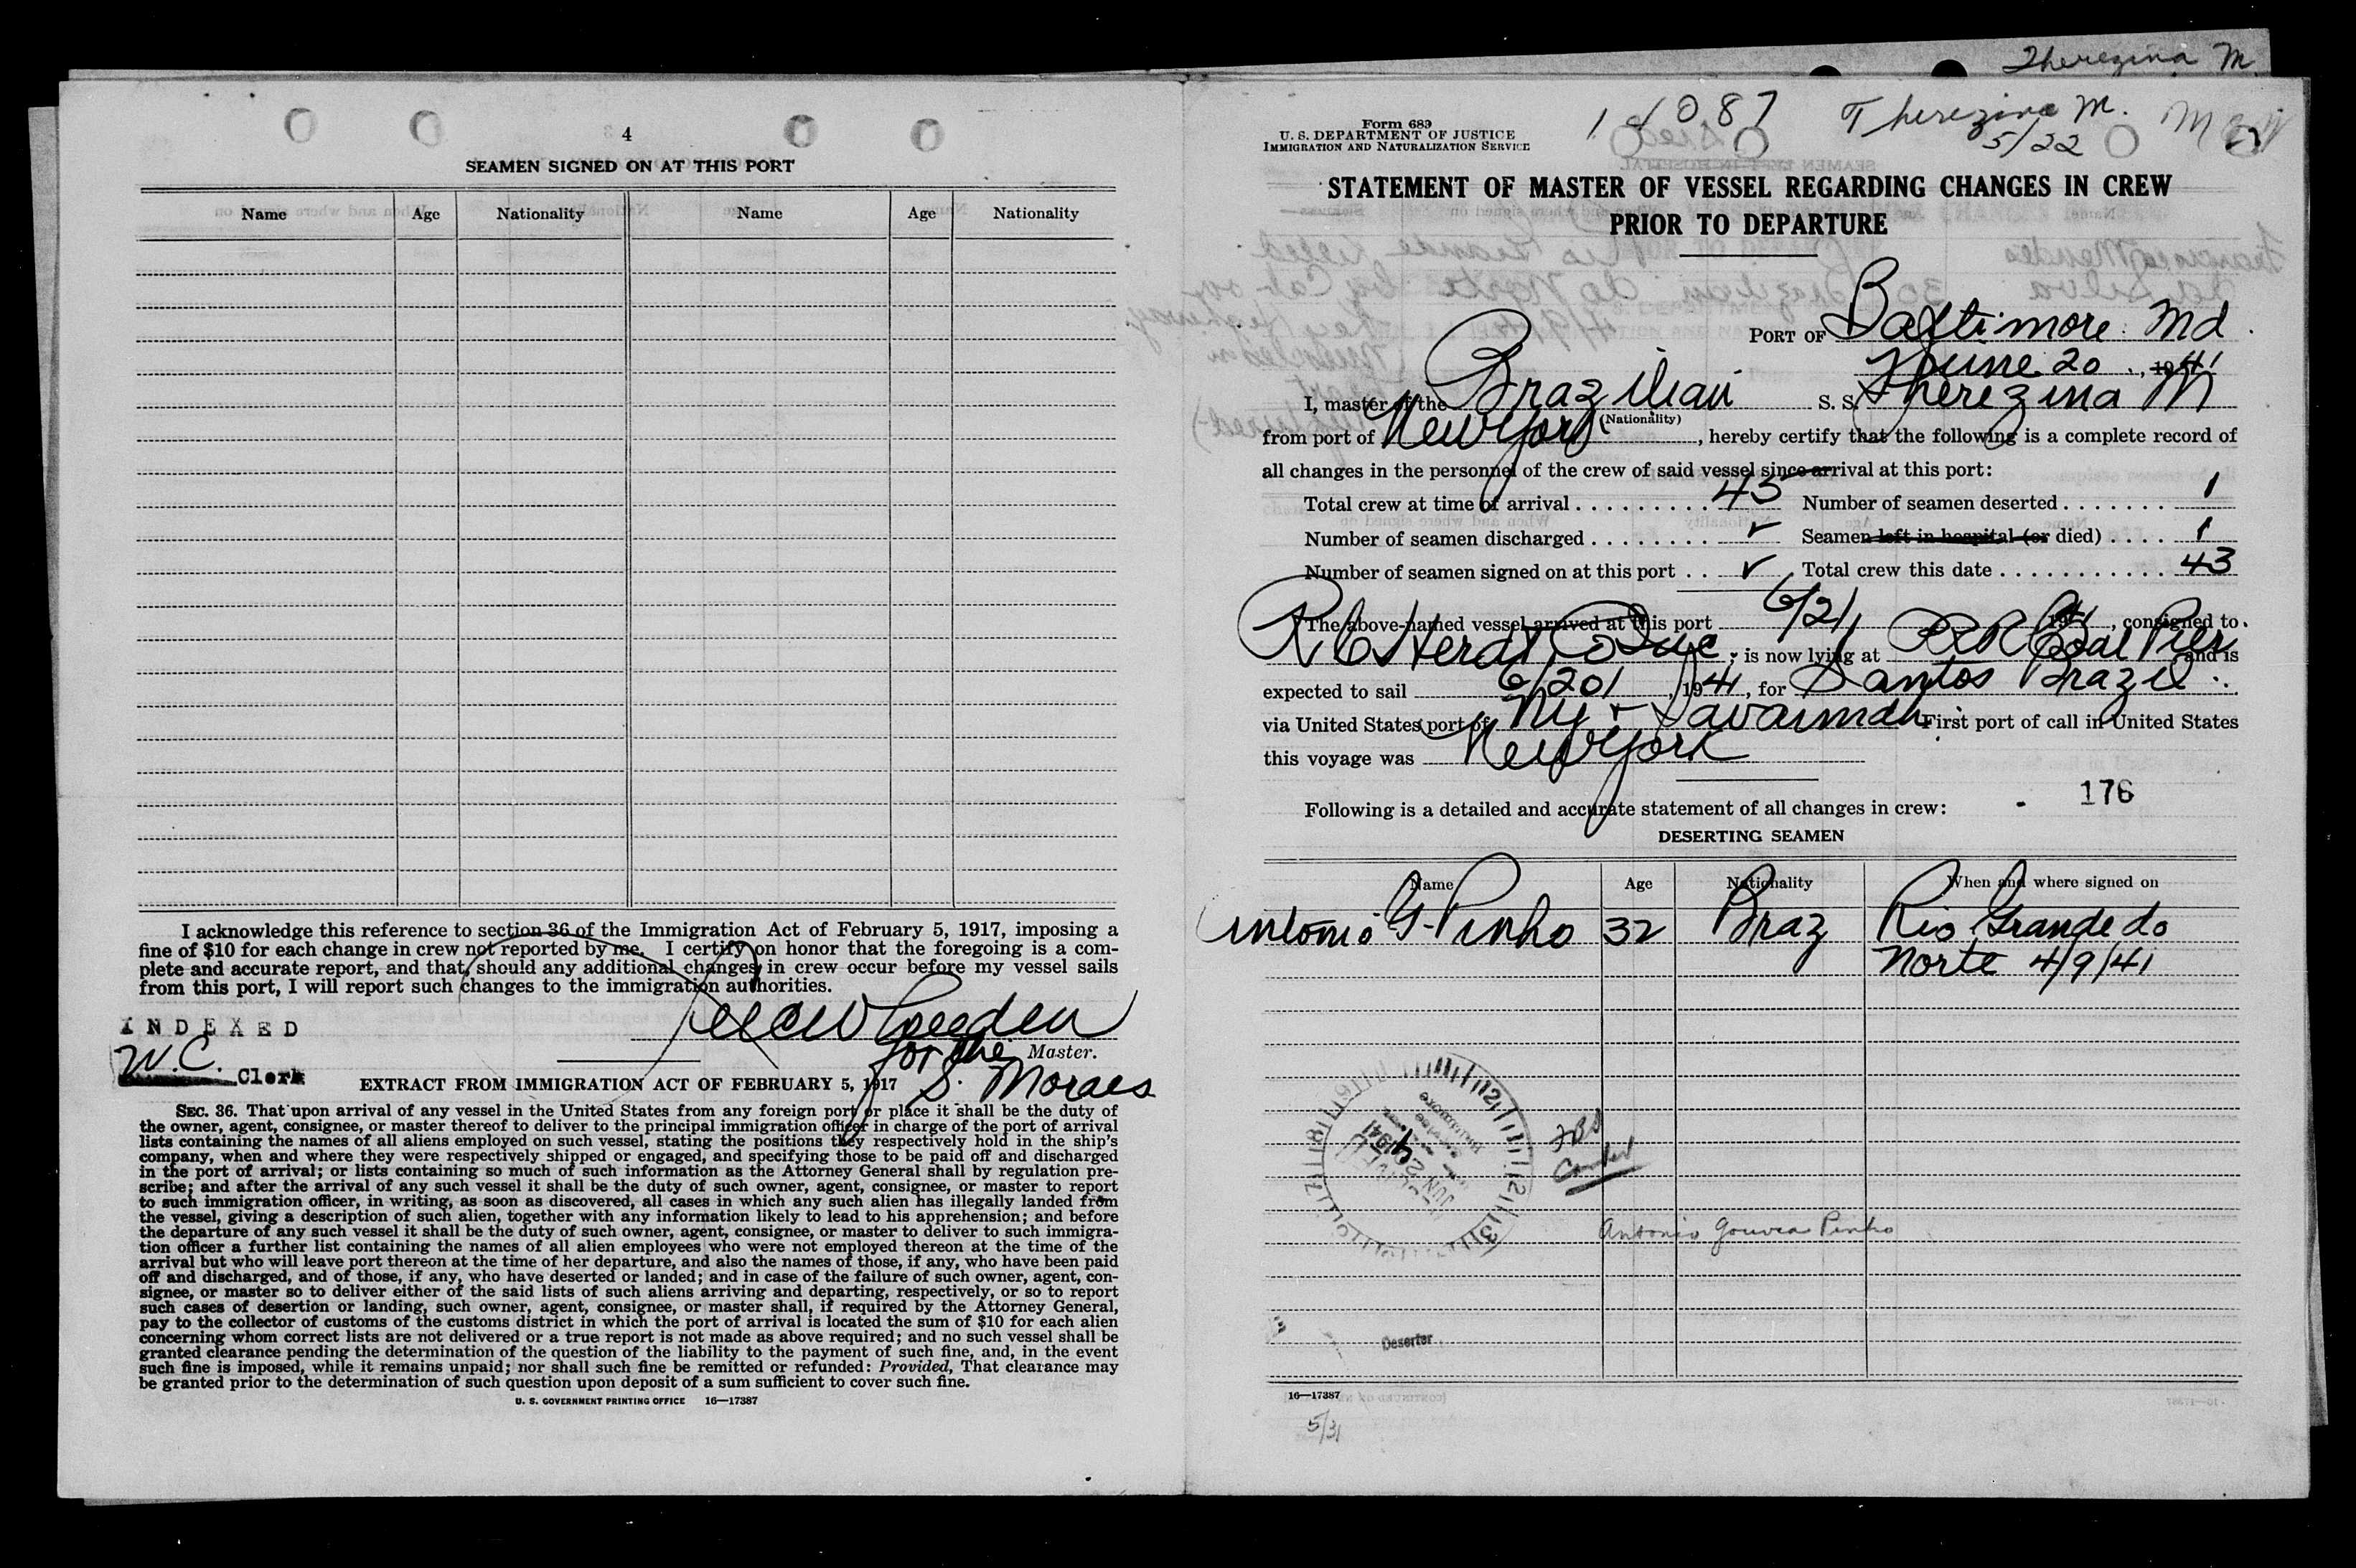 Therezina M.
4
SEAMEN SIGNED ON AT THIS PORT
Name Age Nationality Name Age Nationality
I acknowledge this reference to section 36 of the Immigration Act of February 5, 1917, imposing a
fine of $10 for each change in crew not reported by me. I certify on honor that the foregoing is a com-
plete and accurate report, and that, should any additional changes in crew occur before my vessel sails
from this port, I will report such changes to the immigration authorities.
INDEXED
W.C. Clerk
for the Master.
S. Moraes
EXTRACT FROM IMMIGRATION ACT OF FEBRUARY 5, 1917
SEC. 36. That upon arrival of any vessel in the United States from any foreign port or place it shall be the duty of
the owner, agent, consignee, or master thereof to deliver to the principal immigration officer in charge of the port of arrival
lists containing the names of all aliens employed on such vessel, stating the positions they respectively hold in the ship's
company, when and where they were respectively shipped or engaged, and specifying those to be paid off and discharged
in the port of arrival; or lists containing so much of such information as the Attorney General shall by regulation pre-
scribe; and after the arrival of any such vessel it shall be the duty of such owner, agent, consignee, or master to report
to such immigration officer, in writing, as soon as discovered, all cases in which any such alien has illegally landed from
the vessel, giving a description of such alien, together with any information likely to lead to his apprehension; and before
the departure of any such vessel it shall be the duty of such owner, agent, consignee, or master to deliver to such immigra-
tion officer a further list containing the names of all alien employees who were not employed thereon at the time of the
arrival but who will leave port thereon at the time of her departure, and also the names of those, if any, who have been paid
off and discharged, and of those, if any, who have deserted or landed; and in case of the failure of such owner, agent, con-
signee, or master so to deliver either of the said lists of such aliens arriving and departing, respectively, or so to report
such cases of desertion or landing, such owner, agent, consignee, or master shall, if required by the Attorney General,
pay to the collector of customs of the customs district in which the port of arrival is located the sum of $10 for each alien
concerning whom correct lists are not delivered or a true report is not made as above required; and no such vessel shall be
granted clearance pending the determination of the question of the liability to the payment of such fine, and, in the event
such fine is imposed, while it remains unpaid; nor shall such fine be remitted or refunded: Provided, That clearance may
be granted prior to the determination of such question upon deposit of a sum sufficient to cover such fine.
U. S. GOVERNMENT PRINTING OFFICE 16—17387
Form 689
U. S. DEPARTMENT OF JUSTICE
IMMIGRATION AND NATURALIZATION SERVICE
Therezina M.
5/22
STATEMENT OF MASTER OF VESSEL REGARDING CHANGES IN CREW
PRIOR TO DEPARTURE
PORT OF Baltimore Md.
June 20, 1941
I, master of the Brazilian S. S. Therezina M
(Nationality)
from port of New York, hereby certify that the following is a complete record of
all changes in the personnel of the crew of said vessel since arrival at this port:
Total crew at time of arrival 45 Number of seamen deserted 1
Number of seamen discharged ✓ Seamen left in hospital (or died) 1
Number of seamen signed on at this port ✓ Total crew this date 43
The above-named vessel arrived at this port 6/21, 1941, consigned to
; is now lying at Coal Pier and is
expected to sail 6/20/, 1941, for Santos Brazil
via United States port of NY + Savannah First port of call in United States
this voyage was New York
Following is a detailed and accurate statement of all changes in crew:
176
DESERTING SEAMEN
Name Age Nationality When and where signed on
Antonio G. Pinho 32 Braz Rio Grande do
Norte 4/9/41
JUN 1941
Antonio Gouvea Pinho
Deserter
16—17387
5/31